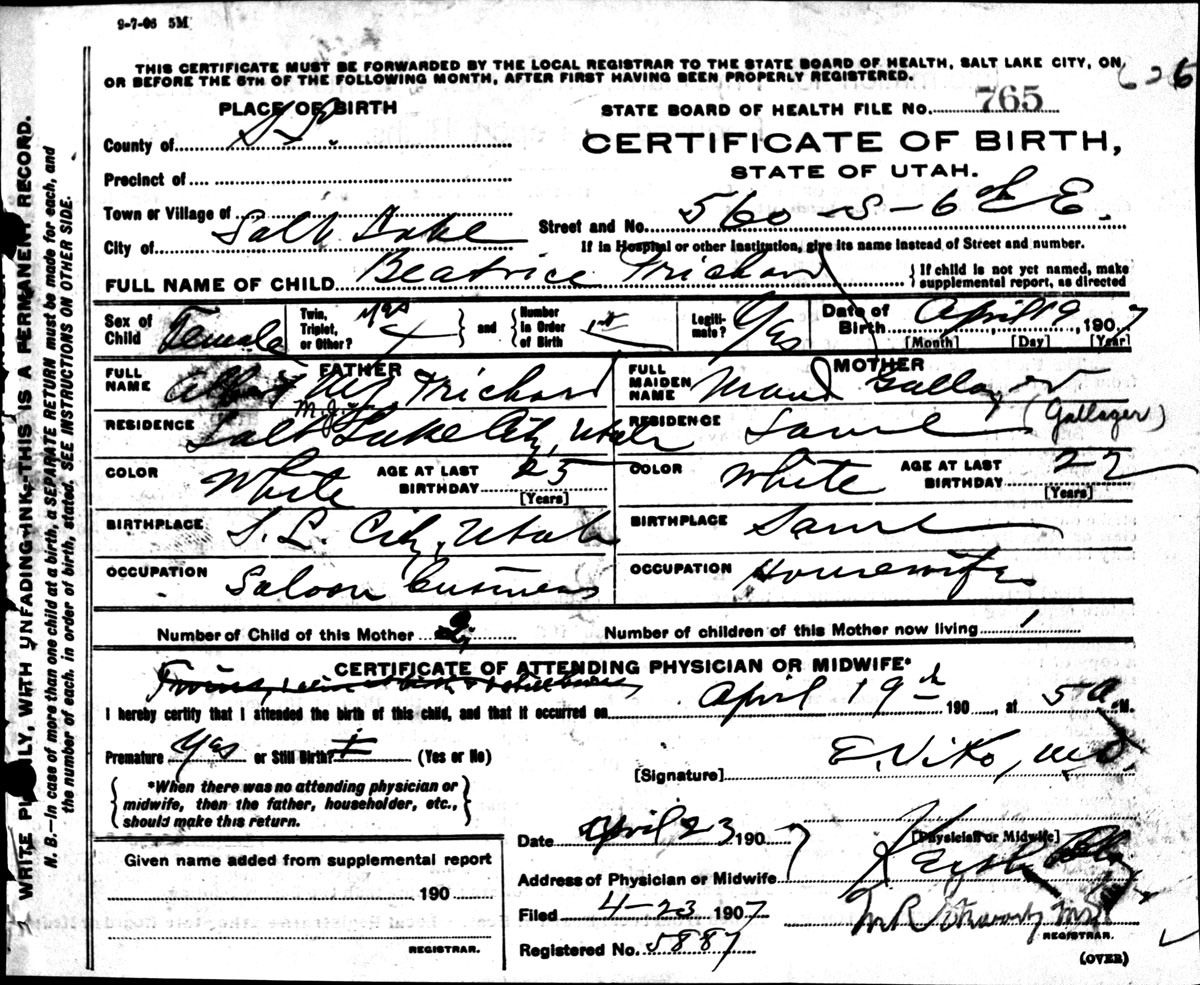 9-7-06 5M
THIS CERTIFICATE MUST BE FORWARDED BY THE LOCAL REGISTRAR TO THE STATE BOARD OF HEALTH, SALT LAKE CITY, ON
OR BEFORE THE 5TH OF THE FOLLOWING MONTH, AFTER FIRST HAVING BEEN PROPERLY REGISTERED.
PLACE OF BIRTH
STATE BOARD OF HEALTH FILE NO. 765
County of
CERTIFICATE OF BIRTH,
STATE OF UTAH.
Precinct of
Town or Village of
Street and No. 560 - S - 6th E.
City of Salt Lake
If in Hospital or other Institution, give its name instead of Street and number.
FULL NAME OF CHILD Beatrice Trichard
} If child is not yet named, make supplemental report, as directed
Sex of Child Female
Twin, Triplet, or Other? yes } and { Number in Order of Birth 1st
Legitimate? Yes
Date of Birth April 19, 1907
[Month] [Day] [Year]
FATHER
MOTHER
FULL NAME Albert Wj Trichard
M.J.
FULL MAIDEN NAME Maud
(Gallager)
RESIDENCE Salt Lake City, Utah
RESIDENCE Same
COLOR White AGE AT LAST BIRTHDAY 25 [Years]
COLOR White AGE AT LAST BIRTHDAY 22 [Years]
BIRTHPLACE S. L. City, Utah
BIRTHPLACE Same
OCCUPATION Saloon business
OCCUPATION Housewife
Number of Child of this Mother 2
Number of children of this Mother now living 1
CERTIFICATE OF ATTENDING PHYSICIAN OR MIDWIFE*
Twins,
I hereby certify that I attended the birth of this child, and that it occurred on April 19th 190 , at 5 a M.
Premature Yes or Still Birth? (Yes or No)
[Signature] E. Viko, M.D.
{ *When there was no attending physician or midwife, then the father, householder, etc., should make this return. }
[Physician or Midwife]
Date April 23 1907
Address of Physician or Midwife
Given name added from supplemental report
190
Filed 4-23 1907
REGISTRAR.
Registered No. 5887
REGISTRAR.
(OVER)
WRITE PLAINLY, WITH UNFADING INK—THIS IS A PERMANENT RECORD.
N. B.—In case of more than one child at a birth, a SEPARATE RETURN must be made for each, and
the number of each, in order of birth, stated. SEE INSTRUCTIONS ON OTHER SIDE.